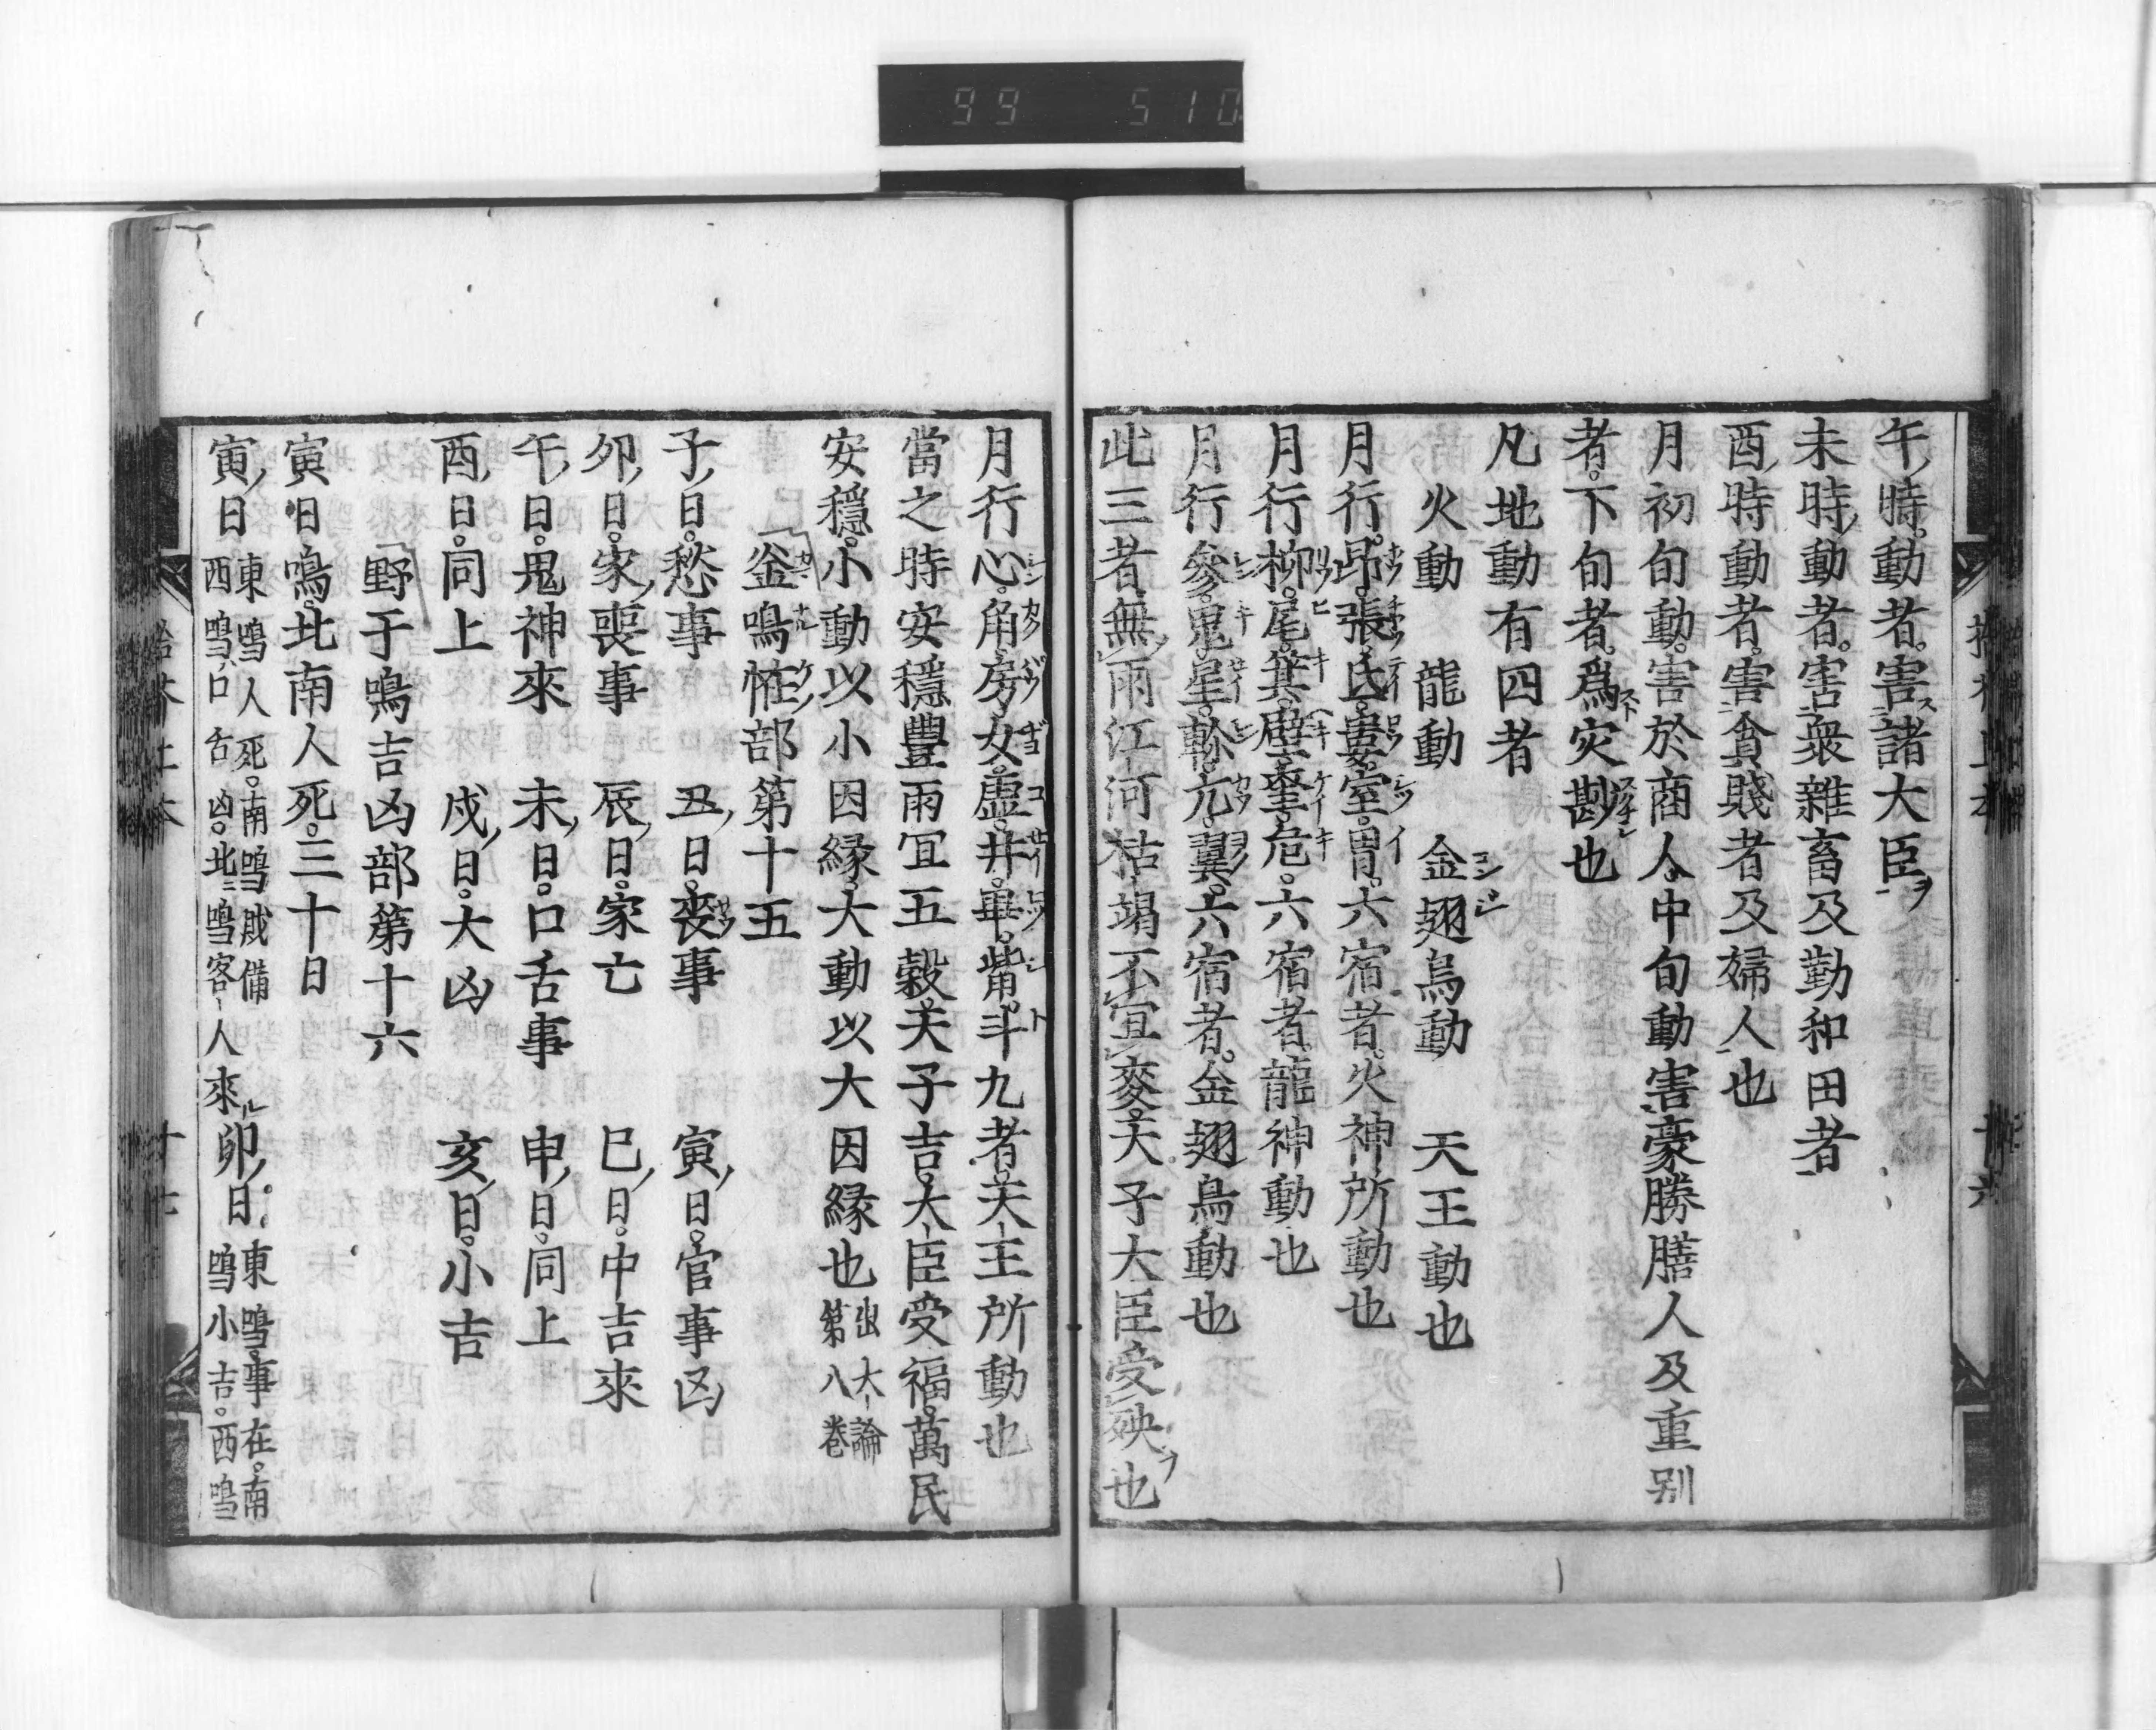 99 510
午時動者害諸大臣
未時動者害衆雜畜及勤和田者
酉時動者害貪賤者及婦人也
月初旬動害於商人中旬動害豪勝膳人及重别
者下旬者爲灾尠也
凡地動有四者
火動 龍動 金翅鳥動 天王動也
月行昴張氐婁室胃六宿者火神所動也
月行柳尾箕壁奎危六宿者龍神動也
月行參鬼星軫亢翼六宿者金翅鳥動也
此三者無雨江河枯竭不宜麥天子大臣受殃也
月行心角房女虚井畢觜斗九者天王所動也
當之時安穩豐雨宜五穀天子吉大臣受福萬民
安穩小動以小因縁大動以大因縁也出大論第八卷
釜鳴恠部第十五
子日愁事 丑日喪事 寅日官事凶
卯日家喪事 辰日家亡 巳日中吉來
午日鬼神來 未日口舌事 申日同上
酉日同上 戌日大凶 亥日小吉
野干鳴吉凶部第十六
寅日鳴北南人死三十日
寅日東鳴人死南鳴賊備西鳴口舌凶北鳴客人來 卯日東鳴事在南鳴小吉西鳴